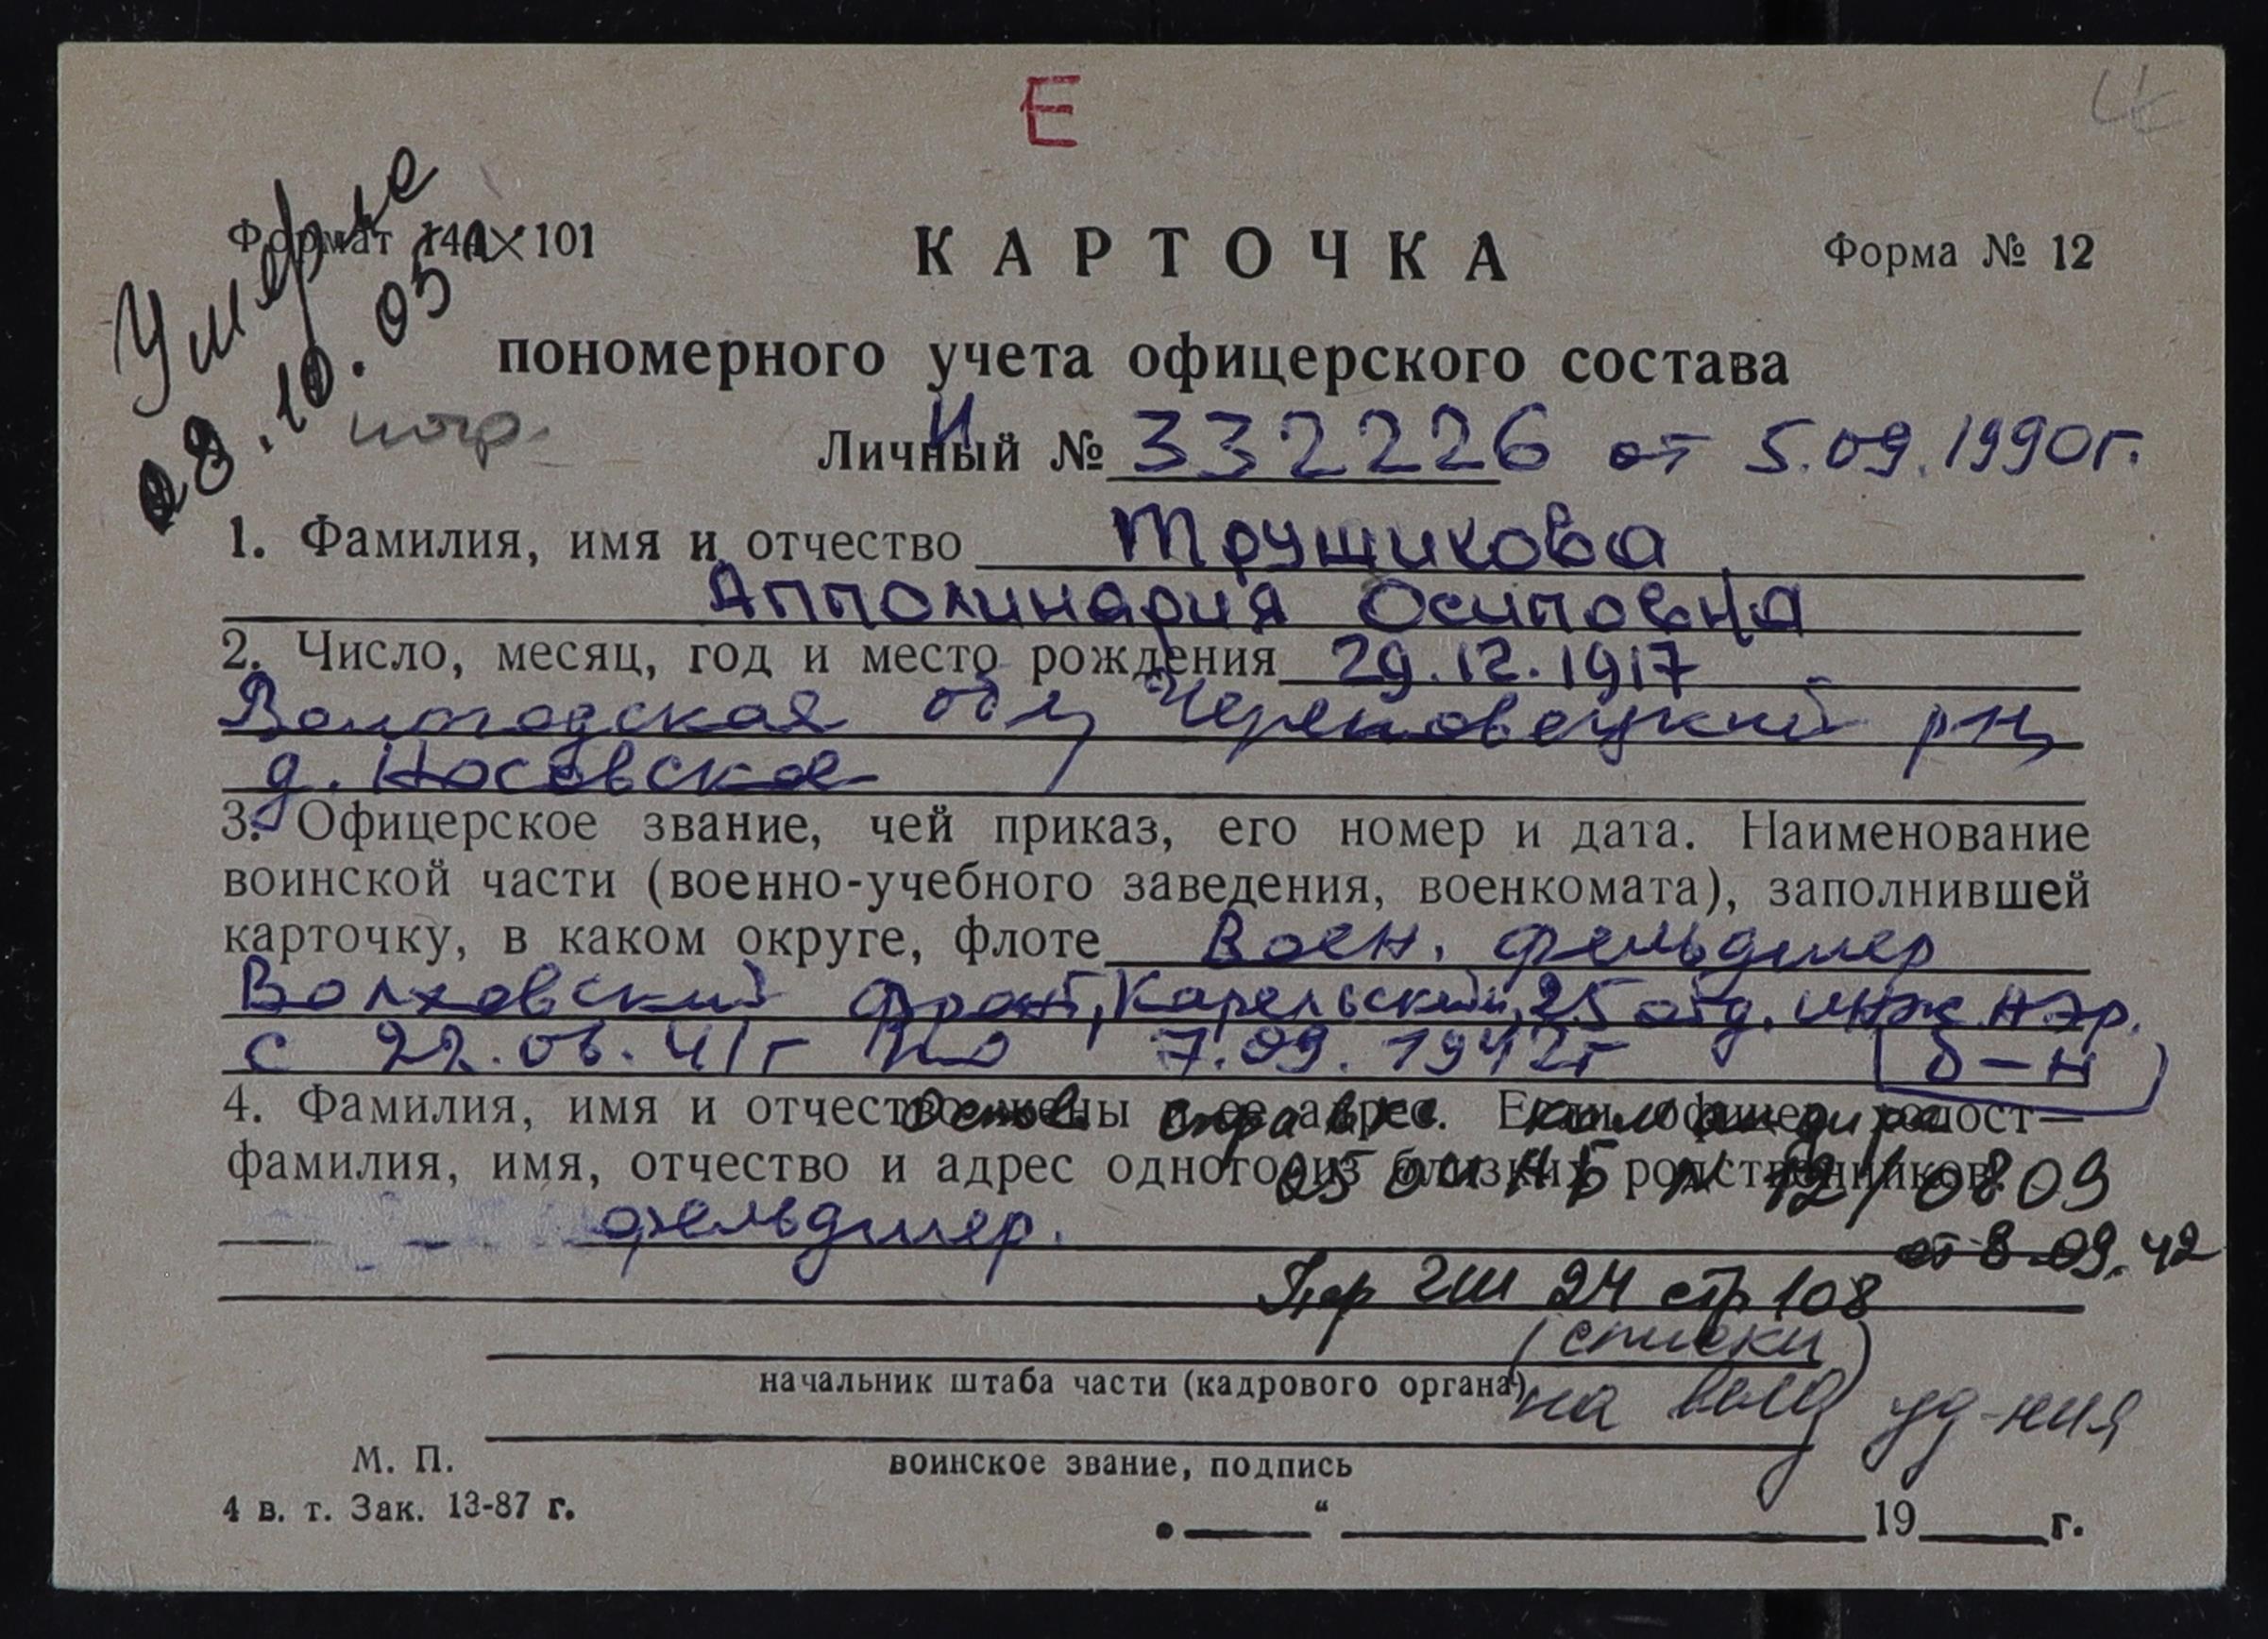 Е
Умерла
28.10.05 г
Формат 144×101
КАРТОЧКА
Форма № 12
пономерного учета офицерского состава
Личный № И 332226 от 5.09.1990г.
1. Фамилия, имя и отчество Трушикова
Апполинария Осиповна
2. Число, месяц, год и место рождения 29.12.1917
Вологодская обл, Череповецкий р-н,
д. Носовская
3. Офицерское звание, чей приказ, его номер и дата. Наименование
воинской части (военно-учебного заведения, военкомата), заполнившей
карточку, в каком округе, флоте Воен. фельдшер
Волховский фронт, Карельский, 25 отд. инж.
с 22.06.41г по 7.09.1942г (б-н)
4. Фамилия, имя и отчество жены и ее адрес. Если офицер холост—
Основ. справка командира
фамилия, имя, отчество и адрес одного из близких родственников.
25 N 12/0809
от 8.09.42
фельдшер.
Пер ГШ 24 стр 108
(списки)
начальник штаба части (кадрового органа)
на выд уд-ния
воинское звание, подпись
М. П.
4 в. т. Зак. 13-87 г.
“ 19 г.